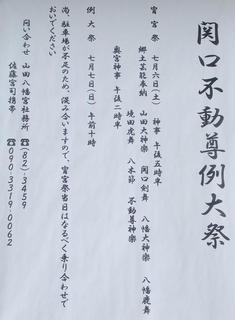 関口不動尊例大祭
宵宮祭 七月六日(土) 神事 午後五時半
郷土芸能奉納 山田大神楽 関口剣舞 八幡大神楽 八幡鹿舞
境田虎舞 八木節 不動尊神楽
奥宮神事 午後二時半
例大祭 七月七日(日) 午前十時
尚、駐車場が不足のため、混み合いますので、宵宮祭当日はなるべく乗り合わせて
おいでください
問い合わせ 山田八幡宮社務所 ☎(82)3459
佐藤宮司携帯 ☎090-3319-0062